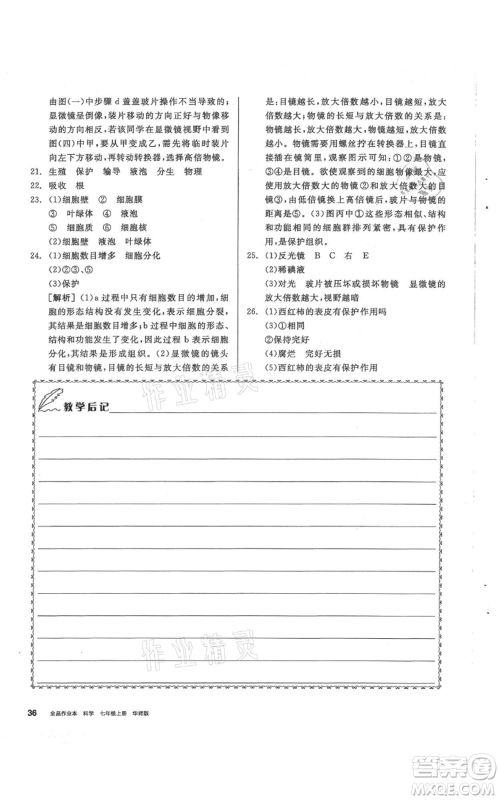 由图(一)中步骤 d 盖盖玻片操作不当导致的;
显微镜呈倒像,装片移动的方向与物像移动
的方向相反,若该同学在显微镜视野中看到
图(四)中甲,要变成乙,需要向左下方移动装
片向左下移动,再转动转换器,选择高倍物镜。
21. 生殖 保护 输导 液泡 分生 物理
22. 吸收 根
23. (1)细胞壁 ②细胞膜
③ 叶绿体 液泡
(2)⑤ 细胞核
(3)细胞壁 液泡 叶绿体
24. (1)细胞数目增多 细胞分化
(2)②③⑤
(3)保护
[解析] (1)a 过程中只有细胞数目的增加,细
胞的形态结构没有改变,表示细胞分裂,细
胞的形态结构与功能发生变化的过程叫细胞
分化,故 b 过程为分化。(2)显微镜的镜头
有目镜和物镜,目镜的长短与放大倍数的关
系是:目镜越长,放大倍数越小,目镜越短,放
大倍数越大,物镜的长短与放大倍数的关系是:
物镜越长,放大倍数越大,物镜越短,放大倍
数越小。物镜需要用螺丝拧在转换器上,目镜
直接插在镜筒上,观察图示可知:①②是物镜,
③④是目镜。使观察到的细胞最大,应该使用放
大倍数最大的目镜与物镜,目镜中放大倍数最大
的是③,物镜中放大倍数最大的是②,此时物镜
与玻片的距离最近,应是⑤。(3)图丙中的这些
形态相似、结构和功能相同的细胞群排列紧密,
具有保护作用,是保护组织。
25. (1)反光镜 B C 右 E
(2)稀碘液
(3)对光 玻片被压坏或损坏物镜 显微镜的
放大倍数越大,视野越暗
26. (1)西红柿的表皮有保护作用吗
(3)①相同
②保持完好
(4)腐烂 完好无损
(5)西红柿的表皮有保护作用
教学后记
作业精灵
作业精灵
36 全品作业本 科学 七年级上册 华师版